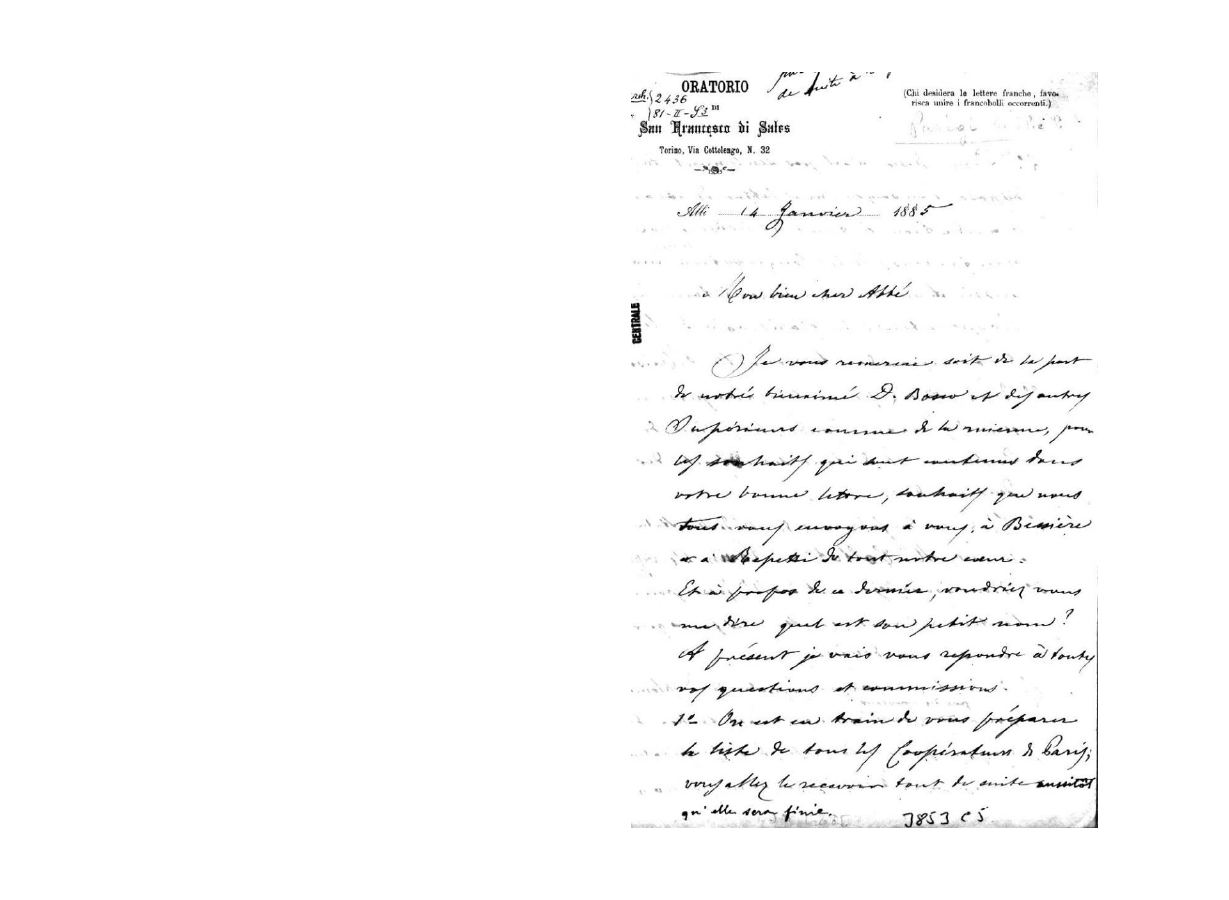 ORATORIO
DI
San Francesco di Sales
Torino, Via Cottolengo, N. 32
de suite à
(Chi desidera le lettere franche, favo-
risca unire i francobolli occorrenti.)
2436
81-II-
Alli 14 Janvier 1885
CENTRALE
Mon bien cher Abbé
Je vous remercie soit de la part
de notre bienaimé D. Bosco et des autres
Supérieurs comme de la mienne, pour
les souhaits qui sont contenus dans
votre bonne lettre, souhaits que nous
tous vous envoyons à vous, à Bessière
et à Repetti de tout notre cœur.
Et à propos de ce dernier, voudriez vous
me dire quel est son petit nom?
A présent je vais vous repondre à toutes
vos questions et commissions.
1º On est en train de vous préparer
la liste de tous les Coopérateurs de Paris;
vous allez la recevoir tout de suite aussitôt
qu'elle sera finie.
3853 C5